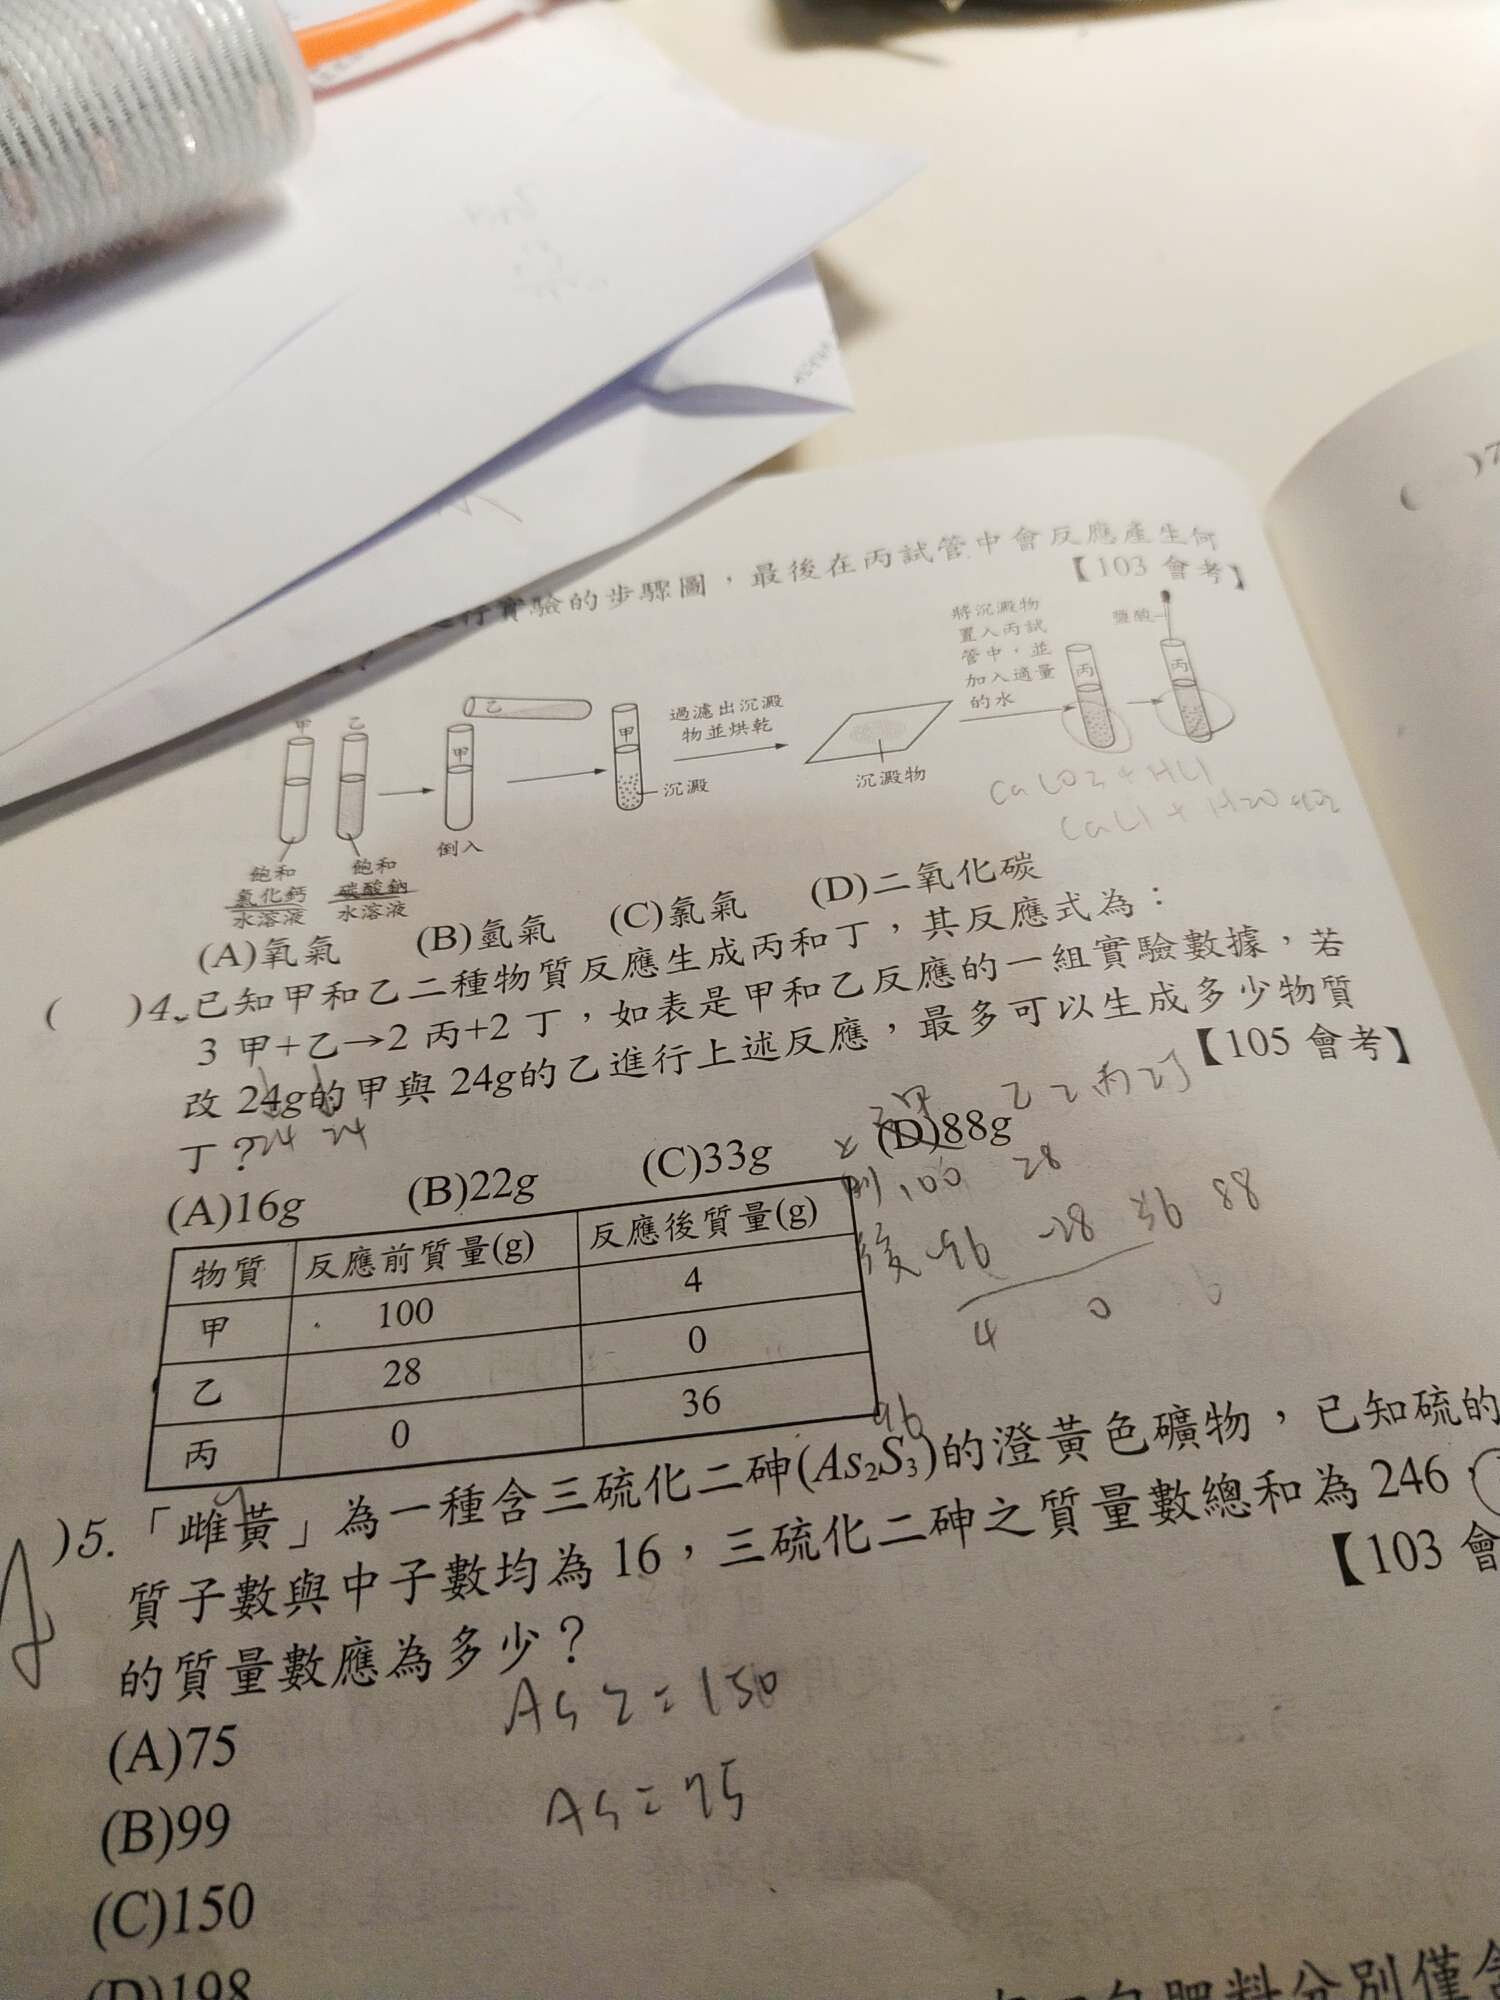 實驗的步驟圖，最後在丙試管中會反應產生何
【103 會考】
將沉澱物
置入丙試
管中，並
加入適量
的水
鹽酸
丙
丙
甲
乙
乙
甲
甲
過濾出沉澱
物並烘乾
沉澱
沉澱物
倒入
飽和
氯化鈣
水溶液
飽和
碳酸鈉
水溶液
(A)氧氣 (B)氫氣 (C)氯氣 (D)二氧化碳
( )4. 已知甲和乙二種物質反應生成丙和丁，其反應式為：
3 甲+乙→2 丙+2 丁，如表是甲和乙反應的一組實驗數據，若
改 24g的甲與 24g的乙進行上述反應，最多可以生成多少物質
丁？ 【105 會考】
24 24
(A)16g (B)22g (C)33g (D)88g
物質 反應前質量(g) 反應後質量(g)
甲 100 4
乙 28 0
丙 0 36
100 28
後 -96 -28 36 88
4 0
96
)5. 「雌黃」為一種含三硫化二砷(As₂S₃)的澄黃色礦物，已知硫的
質子數與中子數均為 16，三硫化二砷之質量數總和為 246，
的質量數應為多少？ 【103 會
As2=150
As=75
(A)75
(B)99
(C)150
(D)198
肥料分別僅含